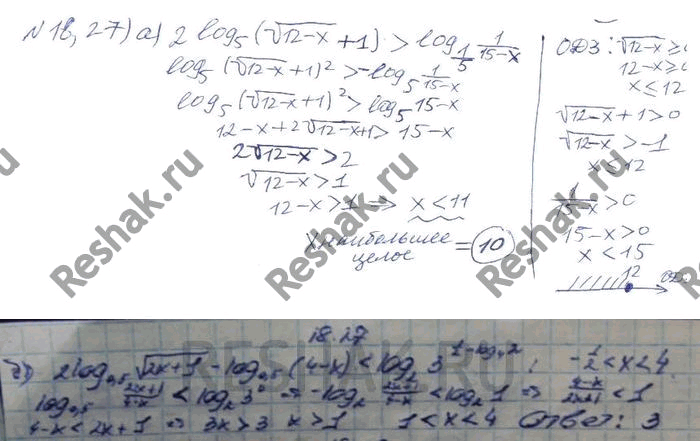 N18,27) a) 2 log₅(√(12-x)+1) > log_{1/5} 1/(15-x)
log₅(√(12-x)+1)² > -log₅ 1/(15-x)
log₅(√(12-x)+1)² > log₅ 15-x
12-x+2√(12-x)+1 > 15-x
2√(12-x) > 2
√(12-x) > 1
12-x > 1 ⇒ x < 11
Xнаибольшее целое = 10
ОДЗ: √(12-x) ≥ 0
12-x ≥ 0
x ≤ 12
√(12-x)+1 > 0
√(12-x) > -1
x ≤ 12
1/(15-x) > 0
15-x > 0
x < 15
12
Reshak.ru
Reshak.ru
Reshak.ru
Reshak.ru
18.27
2) 2log₀,₅ √(2x+1) - log₀,₅(4-x) < log₂ 3 ; -1/2 < x < 4
log₀,₅ (2x+1)/(4-x) < log₂ 3⁰ ⇒ -log₂ (2x+1)/(4-x) < log₂ 1 ⇒ (4-x)/(2x+1) < 1
4-x < 2x+1 ⇒ 3x > 3 x > 1 1 < x < 4 Ответ: 3
RESHAK.RU